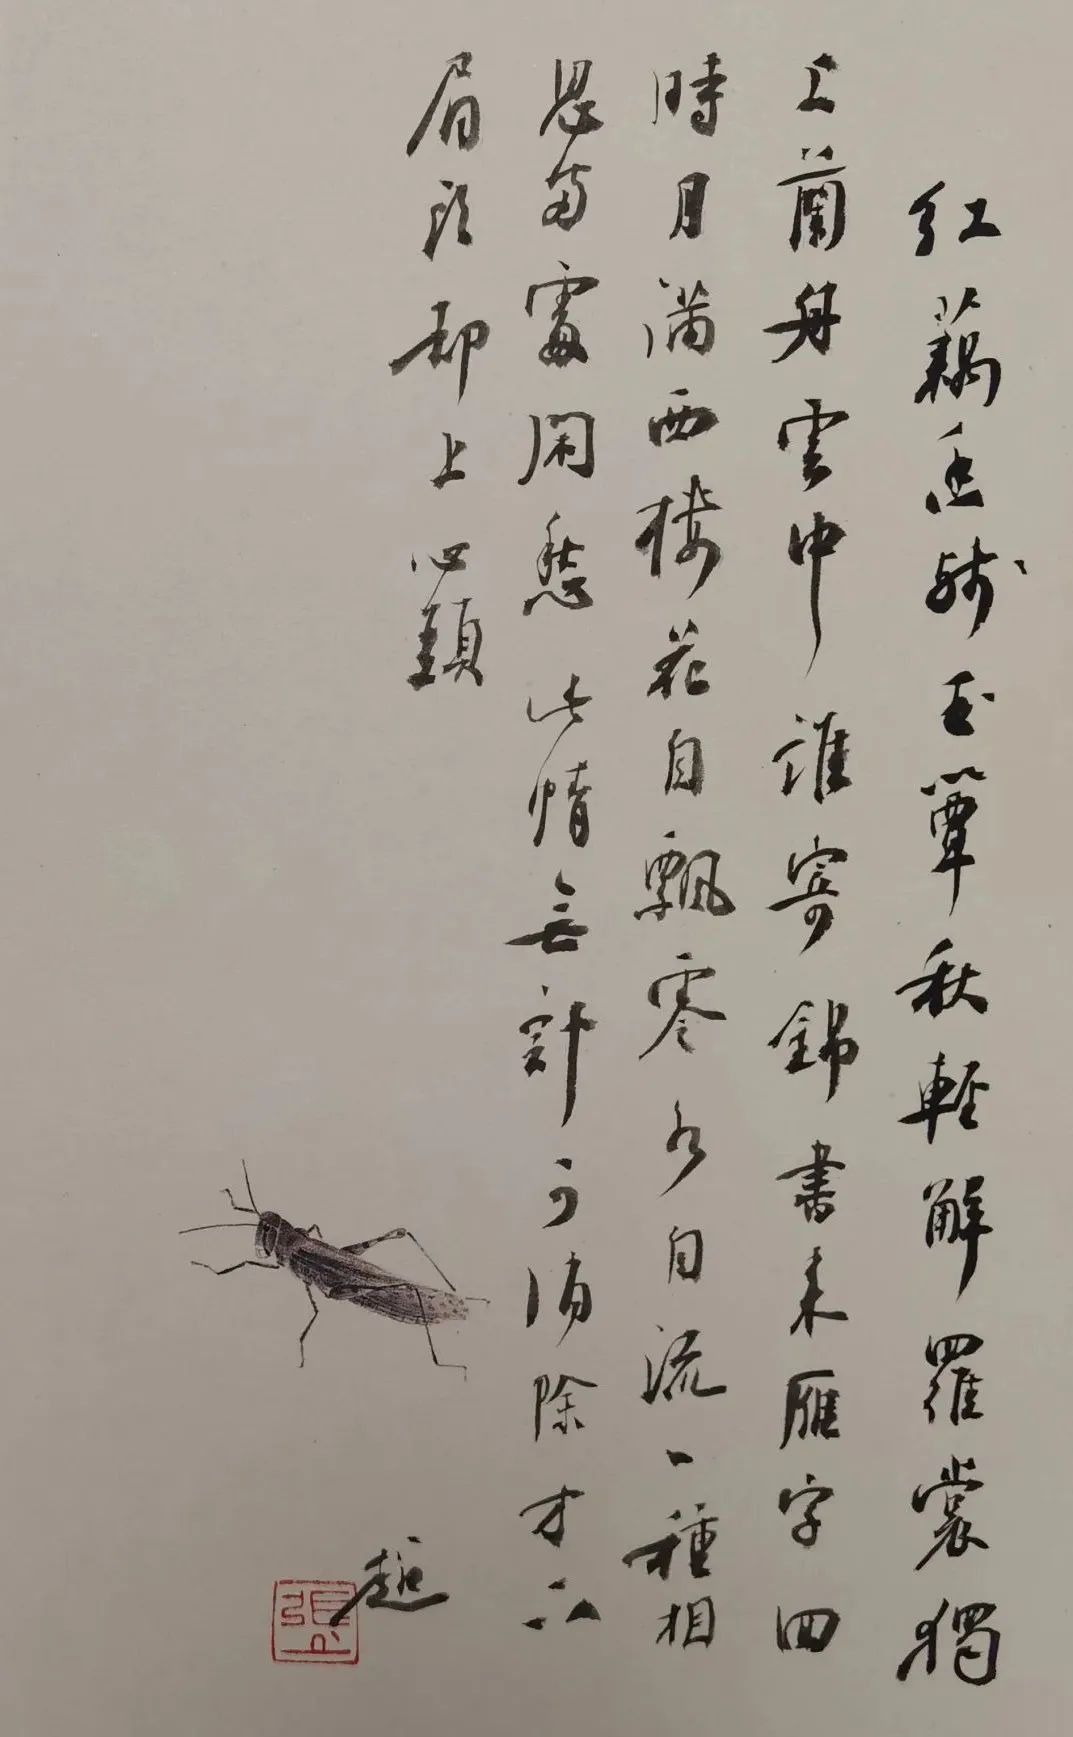 紅藕香残玉簟秋輕解羅裳獨
上蘭舟雲中誰寄錦書来雁字回
時月满西楼花自飘零水自流一種相
思两處閑愁此情無計可消除才下
眉頭却上心頭
超